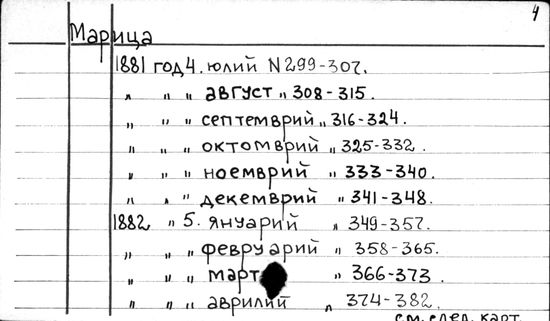 4
Марица
1881 год 4. юлий N 299-307.
„ „ „ август „ 308-315.
„ „ „ септемврий „ 316-324.
„ „ „ октомврий „ 325-332.
„ „ „ ноемврий „ 333-340.
„ „ „ декемврий „ 341-348.
1882 „ 5. януарий „ 349-357.
„ „ „ февруарий „ 358-365.
„ „ „ март „ 366-373
„ „ „ аврилий „ 374-382.
см. след. карт.